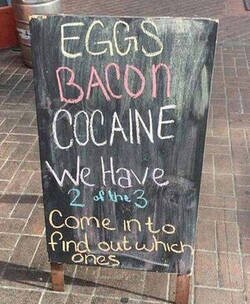 EGGS
BACON
COCAINE
We Have
2 of the 3
Come in to
find out which
ones